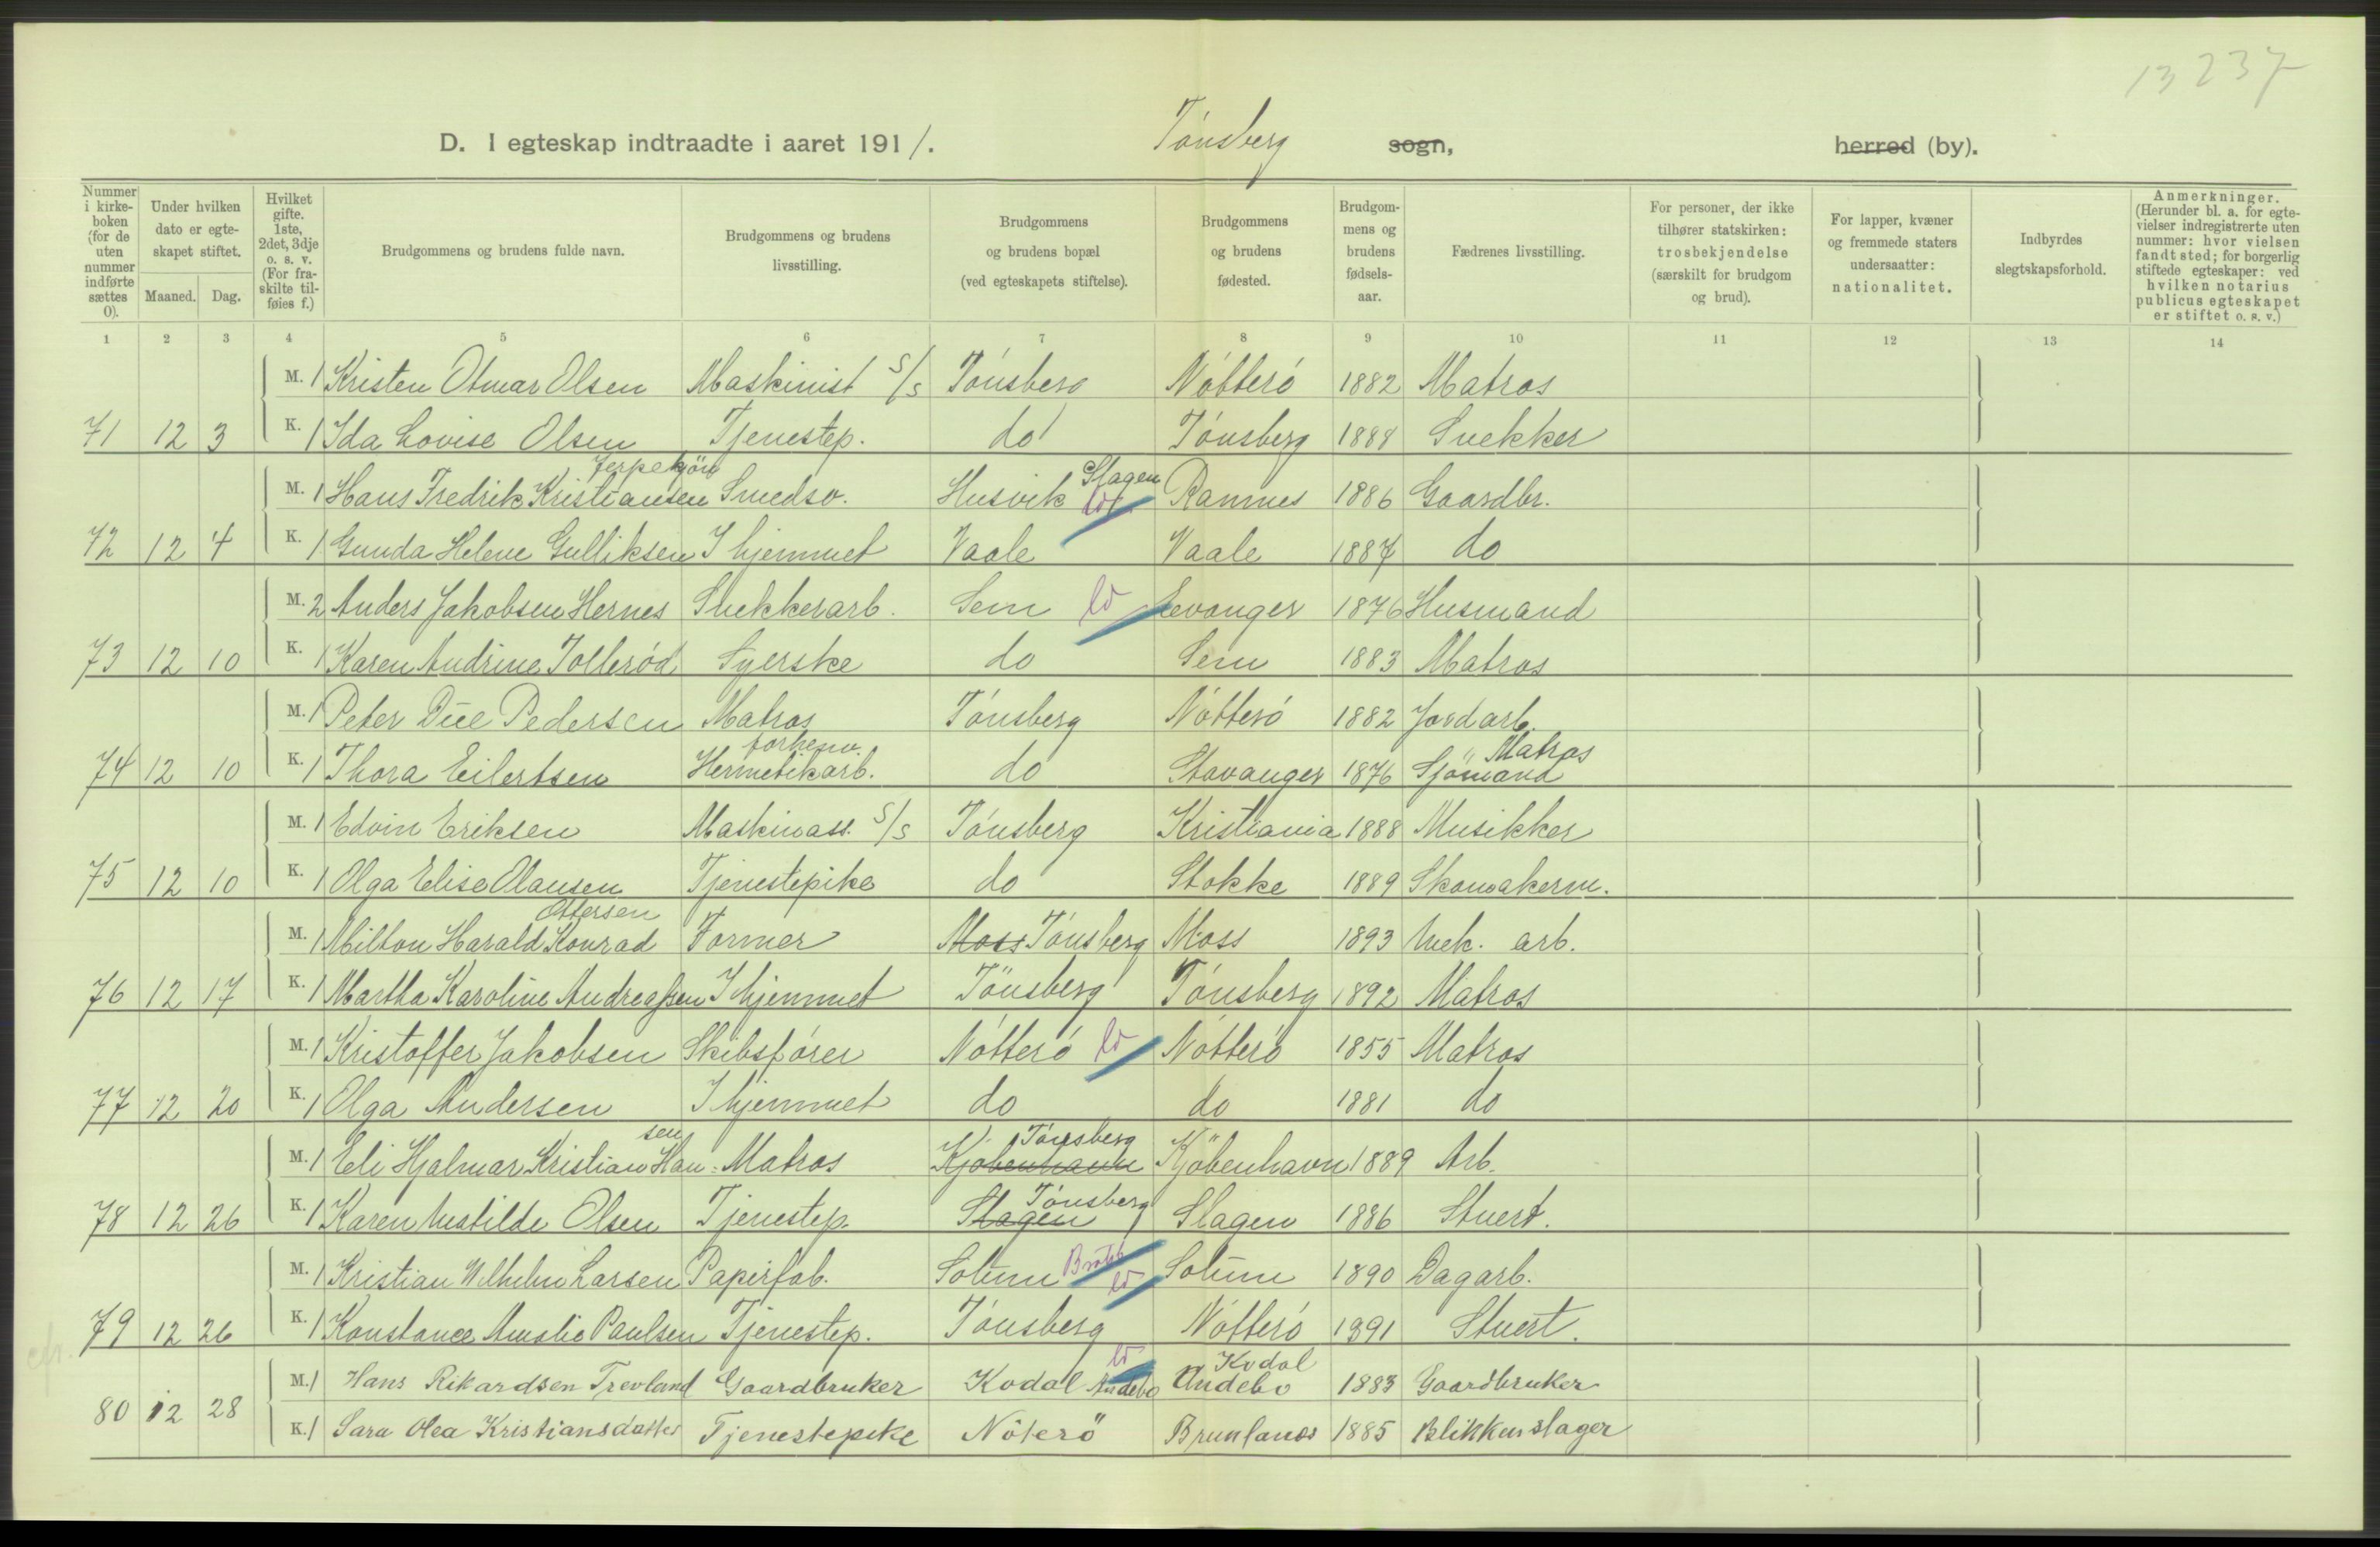 13 237
D. I egteskap indtraadte i aaret 1911. Tönsberg sogn, herred (by).
Nummer i kirkeboken (for de uten nummer indførte sættes 0). Under hvilken dato er egteskapet stiftet. Maaned. Dag. Hvilket gifte. 1ste, 2det, 3dje o. s. v. (For fraskilte tilføies f.) Brudgommens og brudens fulde navn. Brudgommens og brudens livsstilling. Brudgommens og brudens bopæl (ved egteskapets stiftelse). Brudgommens og brudens fødested. Brudgommens og brudens fødselsaar. Fædrenes livsstilling. For personer, der ikke tilhører statskirken: trosbekjendelse (særskilt for brudgom og brud). For lapper, kvæner og fremmede staters undersaatter: nationalitet. Indbyrdes slegtskapsforhold. Anmerkninger. (Herunder bl. a. for egtevielser indregistrerte uten nummer: hvor vielsen fandt sted; for borgerlig stiftede egteskaper: ved hvilken notarius publicus egteskapet er stiftet o. s. v.)
1 2 3 4 5 6 7 8 9 10 11 12 13 14
M. 1 Kristen Otmar Olsen Maskinist S/S Tönsberg Nötterö 1882 Matros
71 12 3 K. 1 Ida Lovise Olsen Tjenestep. do Tönsberg 1888 Snekker
Jerpekjön Slagen
M. 1 Hans Fredrik Kristiansen Smedsv. Husvik Ramnes 1886 Gaardbr.
72 12 4 K. 1 Gunda Helene Gulliksen I hjemmet Vaale Vaale 1887 do
M. 2 Anders Jakobsen Hernes Snekkerarb. Sem Levanger 1876 Husmand
73 12 10 K. 1 Karen Andrine Tollerød Syerske do Sem 1883 Matros
M. 1 Peter Due Pedersen Matros Tönsberg Nötterö 1882 Jordarb.
forhenv. Matros
74 12 10 K. 1 Thora Eilertsen Hermetikarb. do Stavanger 1876 Sjömand
M. 1 Edvin Eriksen Maskinass. S/S Tönsberg Kristiania 1888 Musikker
75 12 10 K. 1 Olga Elise Olausen Tjenestepike do Stokke 1889 Skomakerm.
Ottersen
M. 1 Milton Harald Konrad Former Moss Tönsberg Moss 1893 Mek. arb.
76 12 17 K. 1 Martha Karoline Andreassen I hjemmet Tönsberg Tönsberg 1892 Matros
M. 1 Kristoffer Jakobsen Skibsförer Nötterö Nötterö 1855 Matros
77 12 20 K. 1 Olga Andersen I hjemmet do do 1881 do
sen Tönsberg
M. 1 Eli Hjalmar Kristian Han- Matros Kjöbenhavn Kjöbenhavn 1889 Arb.
Tönsberg
78 12 26 K. 1 Karen Mathilde Olsen Tjenestep. Slagen Slagen 1886 Stuert.
M. 1 Kristian Wilhelm Larsen Papirfab. Solum Solum 1890 Dagarb.
79 12 26 K. 1 Konstance Amalie Paulsen Tjenestep. Tönsberg Nötterö 1891 Stuert.
Kodal
M. 1 Hans Rikardsen Trevland Gaardbruker Kodal Andebo Andebo 1883 Gaardbruker
80 12 28 K. 1 Sara Olea Kristiansdatter Tjenestepike Nöterö Brunlanes 1885 Blikkenslager